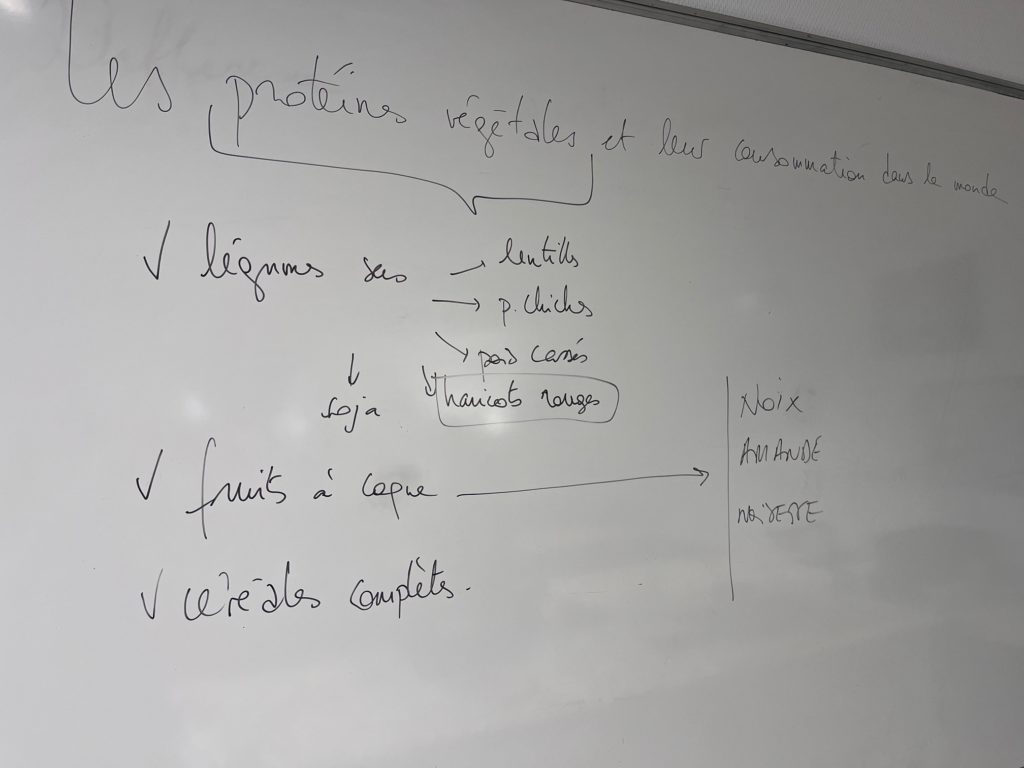 Les protéines végétales et leur consommation dans le monde
✓ légumes secs → lentilles
→ p. chiches
→ pois cassés
→ haricots rouges
↓
soja
✓ fruits à coque → NOIX
AMANDE
NOISETTE
✓ céréales complètes.